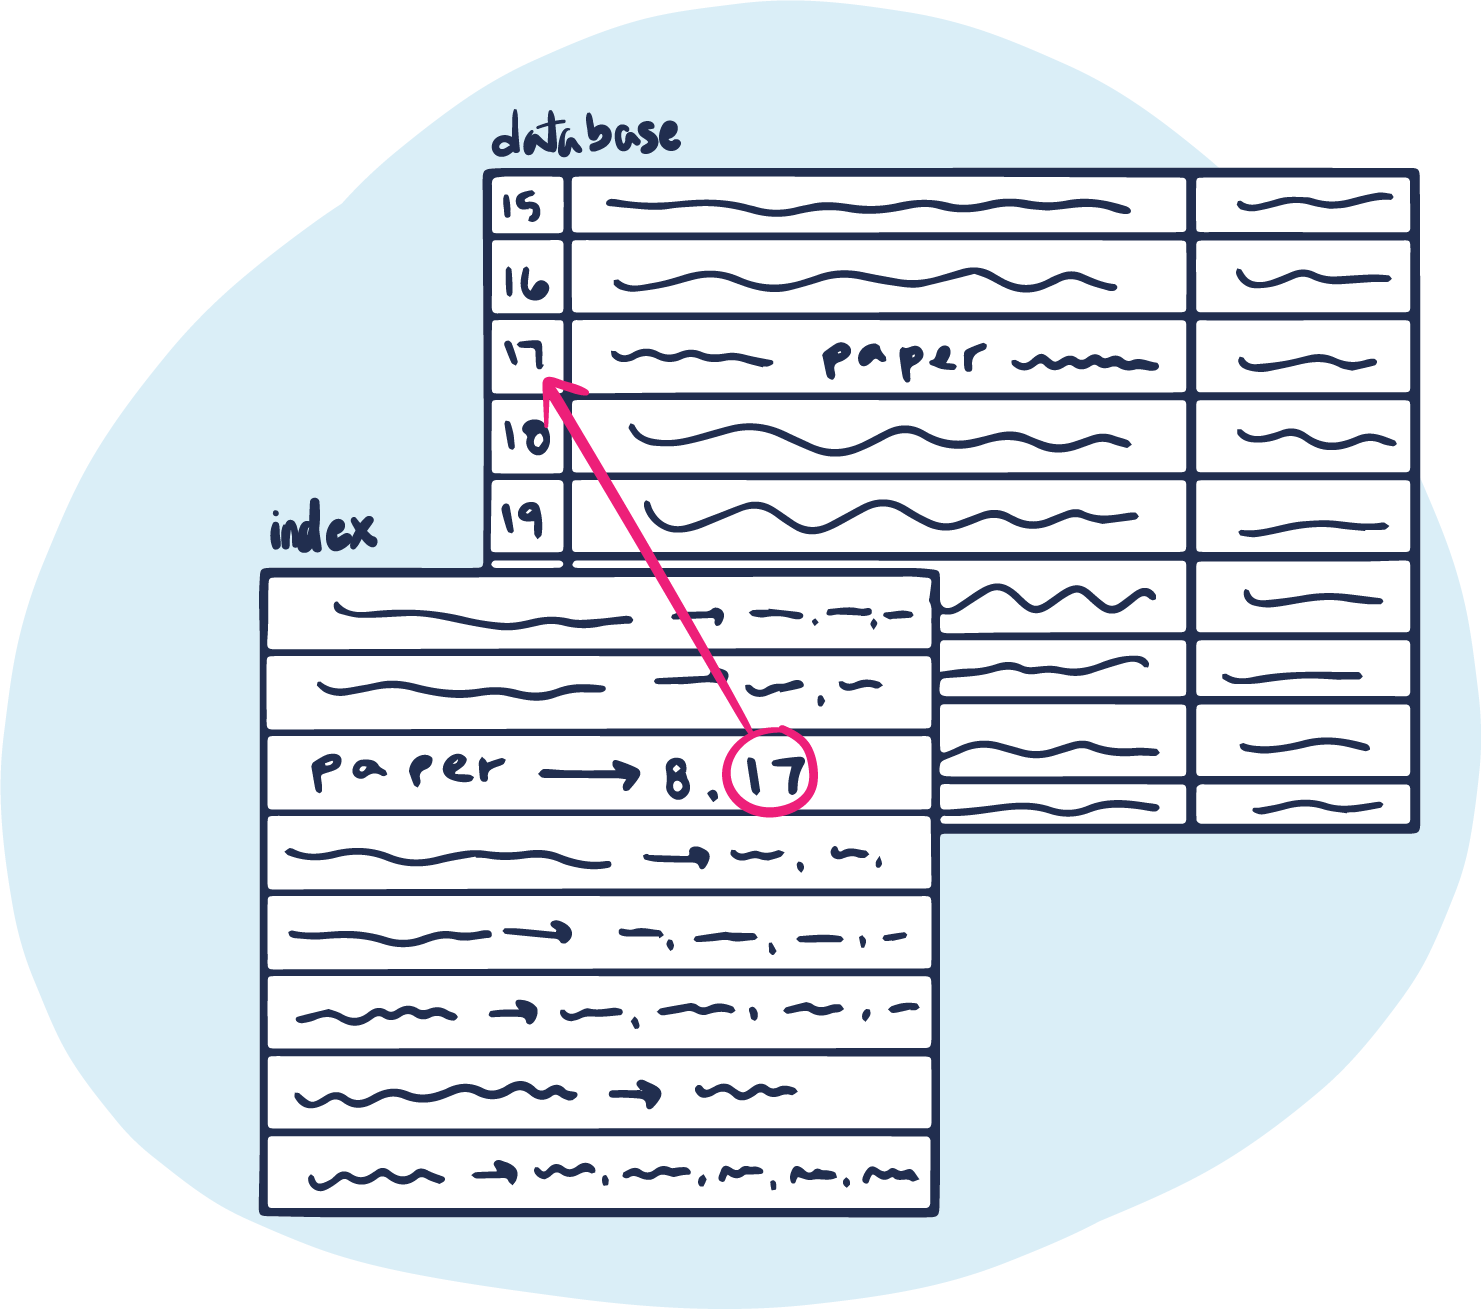 database
15
16
17 paper
18
19
index
paper → 8, 17